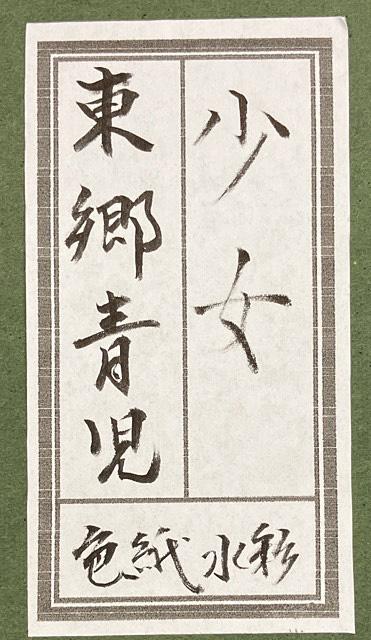 少女
東郷青児
色紙水彩